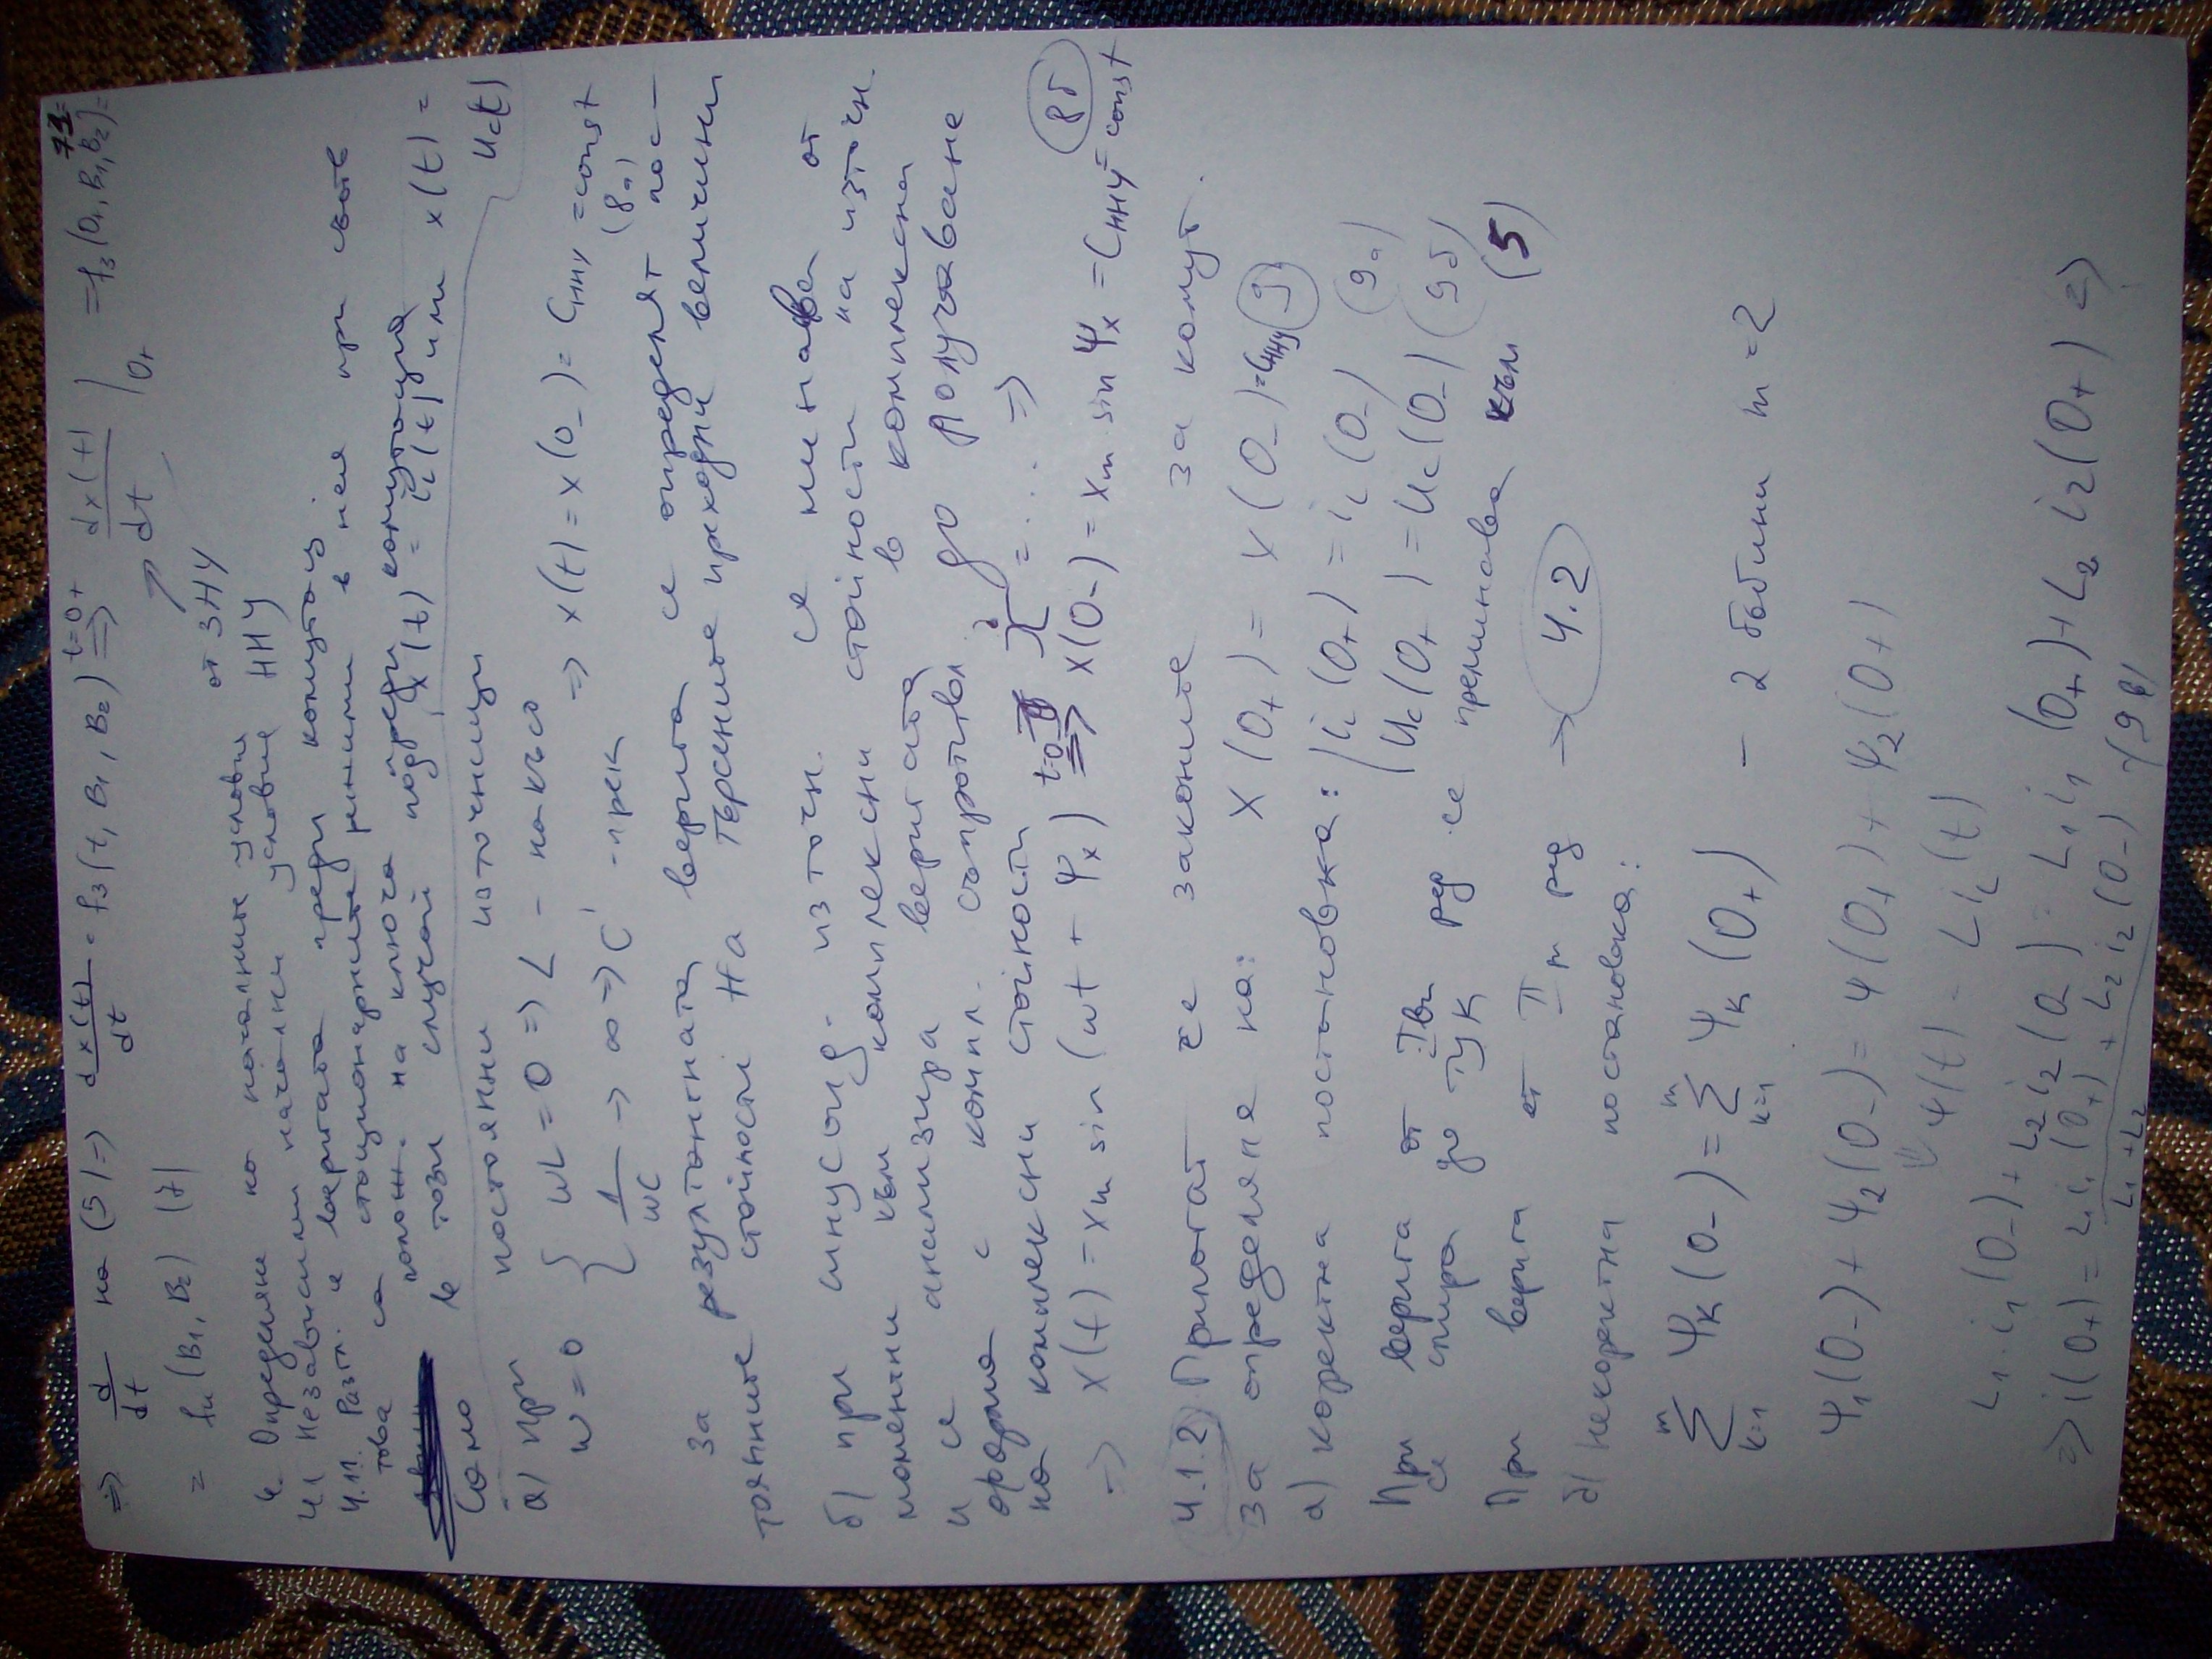 73
⇒ d/dt на (5) ⇒ dx(t)/dt = f₃(t, B₁, B₂) t=0₊ ⇒ dx(t)/dt |0₊ = f₃(0₊, B₁, B₂) =
= fн(B₁, B₂) (7) от ЗНУ
4. Определяне на начални условия
4.1 Независими начални условия ННУ
4.1.1. Разгл. се веригата преди комутац.
това са стационарните режими в нея при съотв
полож. на ключа преди комутация
Само в този случай x(t) = iL(t) или x(t) = uc(t)
а) при постоянни източници
ω = 0 { ωL = 0 ⇒ L - накъсо
1/ωC → ∞ ⇒ C - прек ⇒ x(t) = x(0₋) = Cнну = const (8a)
за резултантната верига се определят пос-
тоянните стойности на търсените преходни величини
б) при синусоид. източн. се минава от
моментни към комплексни стойности на източн.
и се анализира веригата в комплексна
форма с компл. съпротивл. до получаване
на комплексни стойности Ẋ = ... ⇒
⇒ x(t) = xm sin(ωt + Ψx) t=0₋ ⇒ x(0₋) = xm sin Ψx = Cнну = const (8б)
4.1.2) Прилагат се законите за комут.
за определяне на: x(0₊) = x(0₋) = Cнну (9)
а) коректна постановка: { iL(0₊) = iL(0₋) (9a)
uc(0₊) = uc(0₋) (9б)
При верига от I ви ред се преминава към (5)
се спира до ТУК
При верига от II ри ред → 4.2
б) некоректна постановка:
m Σ k=1 Ψк(0₋) = m Σ k=1 Ψк(0₊) - 2 бобини m = 2
Ψ₁(0₋) + Ψ₂(0₋) = Ψ(0₊) + Ψ₂(0₊)
Ψ(t) = L iL(t)
L₁.i₁(0₋) + L₂ i₂(0) = L₁ i₁(0₊) + L₂ i₂(0₊) ⇒
⇒ i(0₊) = L₁ i₁(0₊) + L₂ i₂(0₋) / L₁ + L₂ (9в)